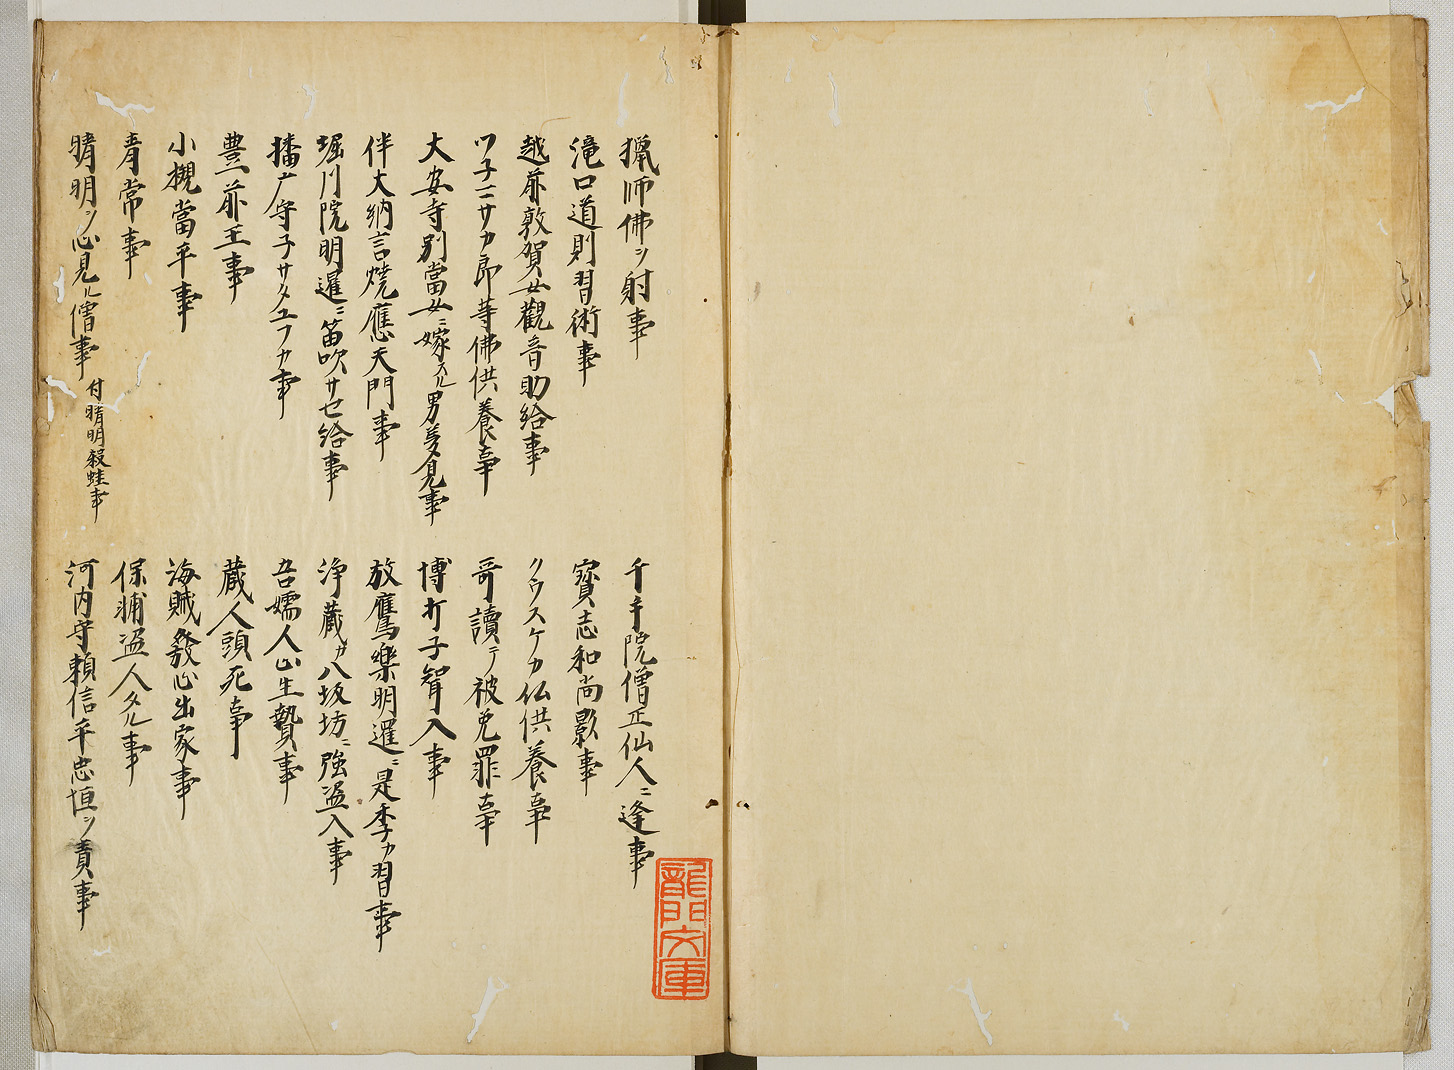 猟師佛ヲ射事
千手院僧正仙人ニ逢事
滝口道則習術事
寳志和尚影事
越前敦賀女觀音助給事
クウスケカ仏供養事
ツ子マサカ郎等佛供養事
哥讀テ被免罪事
大安寺別當女ニ嫁スル男夢見事
博打子聟入事
伴大納言焼應天門事
放鷹樂明暹ニ是季カ習事
堀川院明暹ニ笛吹サセ給事
浄蔵カ八坂坊ニ強盗入事
播广守子サタユフカ事
吾嬬人止生贄事
豊前王事
蔵人頭死事
小槻當平事
海賊發心出家事
青常事
保輔盗人タル事
晴明ヲ心見ル僧事 付晴明殺蛙事
河内守頼信平忠恒ヲ責事
龍門文庫